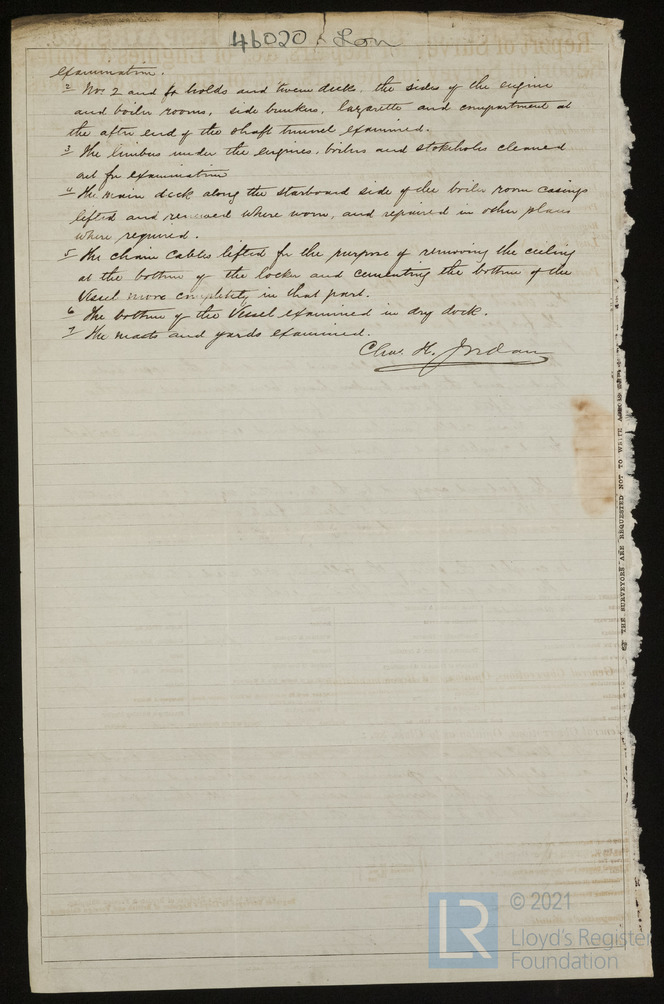 46020. Lon
examination.
2 Nos. 2 and holds and tween decks, the sides of the engine
and boiler rooms, side bunkers, lazarette and compartment at
the after end of the shaft tunnel examined.
3 The limbers under the engines, boilers and stokeholes cleaned
out for examination
4 The main deck along the starboard side of the boiler room casings
lifted and renewed where worn, and repaired in other places
where required.
5 The chain cables lifted for the purpose of removing the ceiling
at the bottom of the locker and cementing the bottom of the
Vessel more completely in that part.
6 The bottom of the Vessel examined in dry dock.
7 The masts and yards examined.
Chas. H. Jordan
THE SURVEYORS ARE REQUESTED NOT TO WRITE ACROSS
© 2021
LR
Lloyd's Register
Foundation